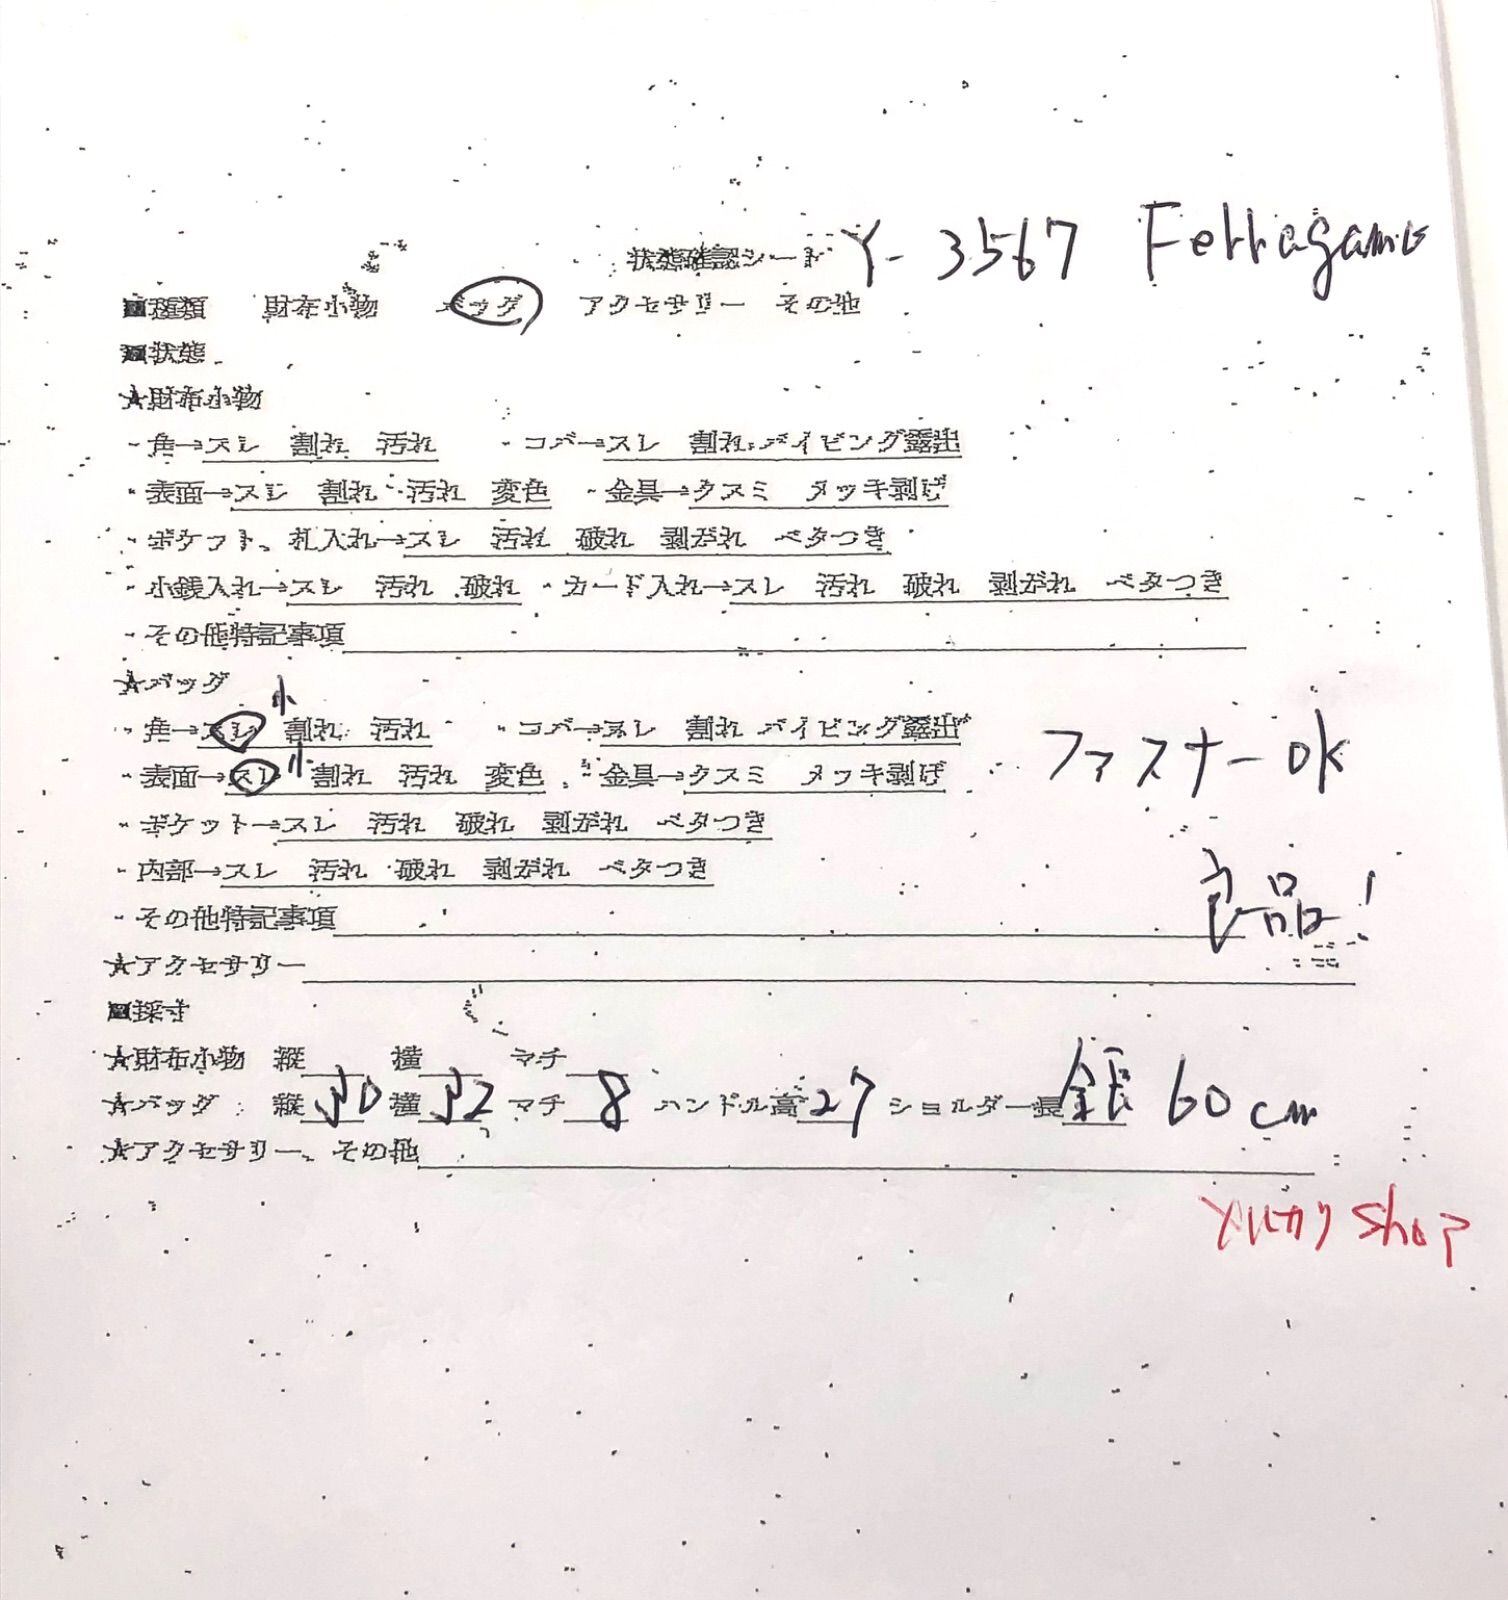 状態確認シート Y-3567 Ferragamo
■種類 財布小物 バッグ アクセサリー その他
■状態
★財布小物
・角→スレ 割れ 汚れ ・コバ→スレ 割れ パイピング露出
・表面→スレ 割れ 汚れ 変色 ・金具→クスミ メッキ剥げ
・ポケット、札入れ→スレ 汚れ 破れ 剥がれ ベタつき
・小銭入れ→スレ 汚れ 破れ ・カード入れ→スレ 汚れ 破れ 剥がれ ベタつき
・その他特記事項
★バッグ
・角→スレ 小 割れ 汚れ ・コバ→スレ 割れ パイピング露出
・表面→スレ 小 割れ 汚れ 変色 ・金具→クスミ メッキ剥げ
ファスナーOK
・ポケット→スレ 汚れ 破れ 剥がれ ベタつき
・内部→スレ 汚れ 破れ 剥がれ ベタつき
良品!
・その他特記事項
★アクセサリー
■採寸
★財布小物 縦 横 マチ
★バッグ 縦 30 横 32 マチ 8 ハンドル高 27 ショルダー長 全長 60cm
★アクセサリー、その他
Shop